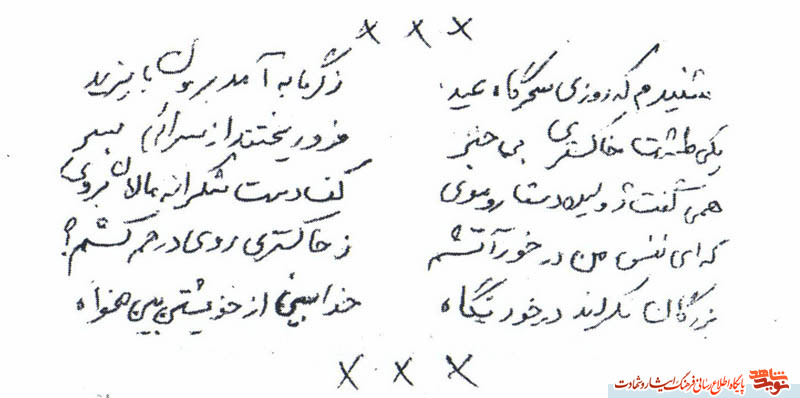 × × ×
شنیدم که روزی سحرگاه عید ز گرمابه آمد برون بایزید
یکی طشت خاکستری بی خبر فرو ریختند از سرائی بسر
همی گفت ژولیده دستار و موی کف دست شکرانه مالان بروی
که ای نفس من در خور آتشم ز خاکستری روی درهم کشم؟
بزرگان نکردند در خود نگاه خدابینی از خویشتن بین مخواه
× × ×
نوید شاهد پایگاه اطلاع رسانی فرهنگ ایثار و شهادت